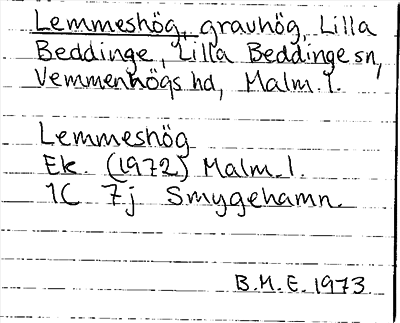 Lemmeshög, gravhög, Lilla
Beddinge, Lilla Beddinge sn,
Vemmenhögs hd, Malm. l.
Lemmeshög
Ek. (1972) Malm. l.
1C 7j Smygehamn.
B.M.E. 1973